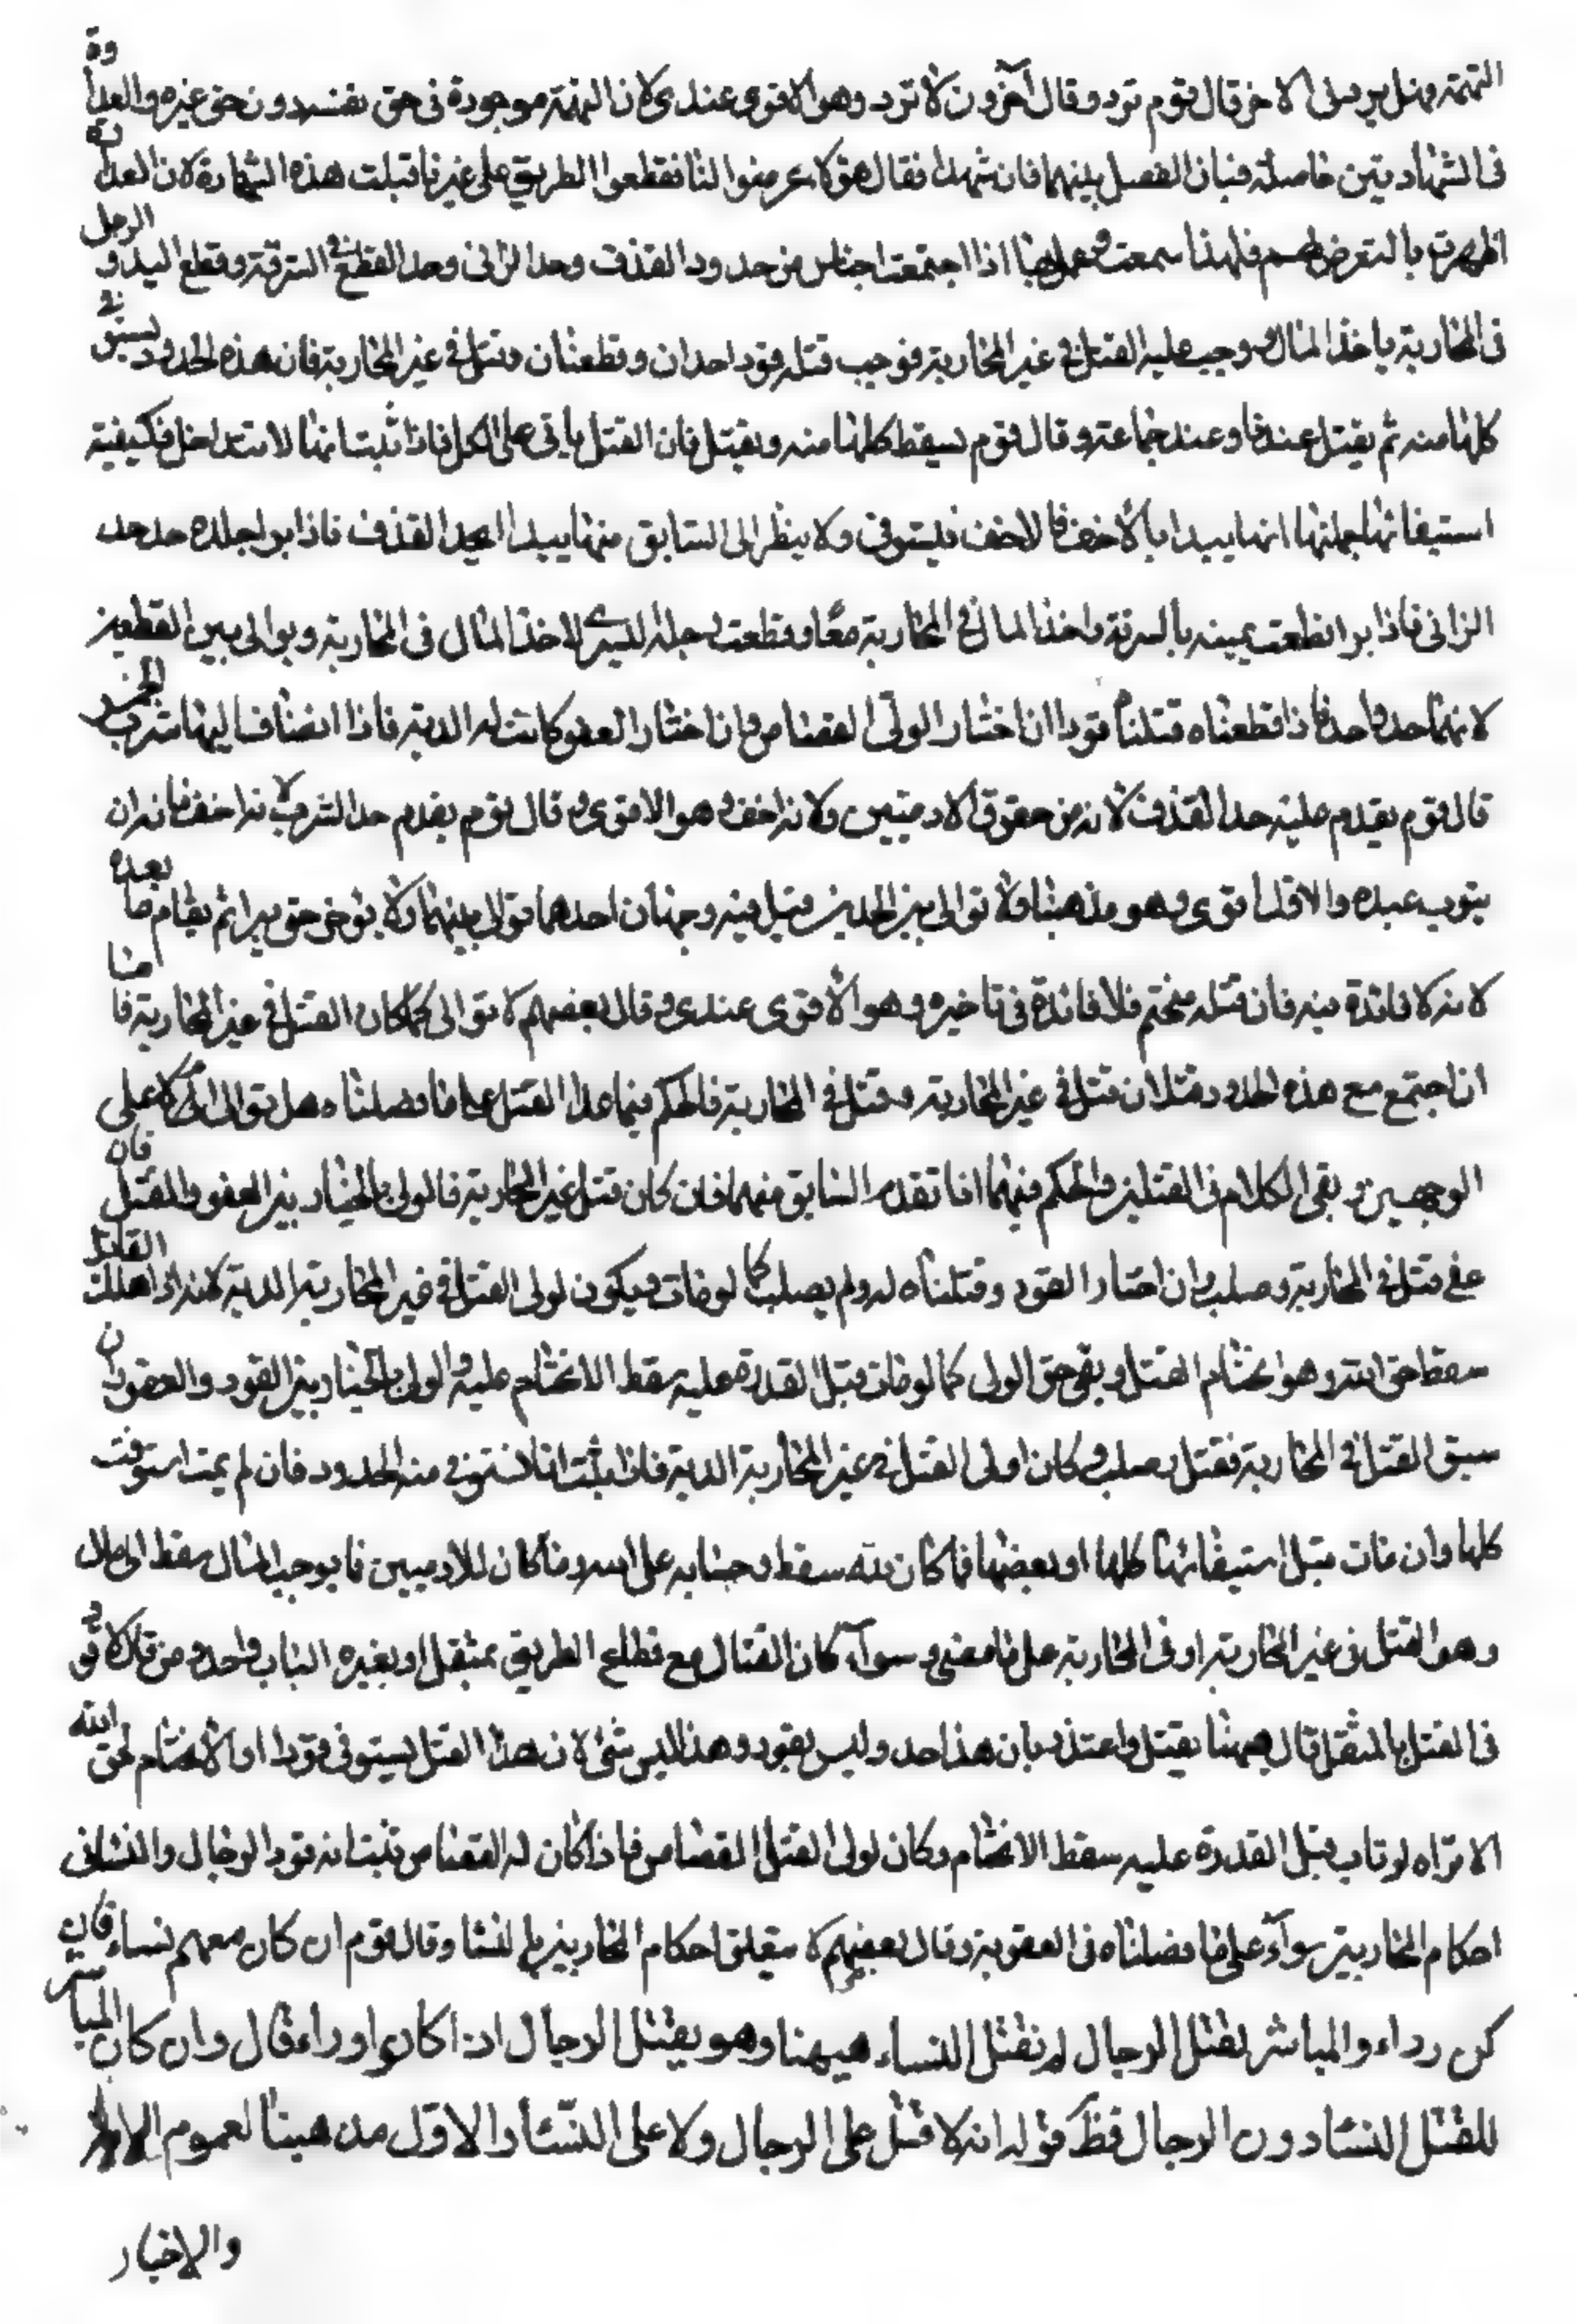 التهمة وهل يرد في الاخر قال قوم ترد وقال آخرون لا ترد وهو الاقوى عندى لان التهمة موجودة فى حق نفسه دون حق غيره والعداوة
فى الشهادتين حاصلة فبان الفصل بينهما فان شهدا فقال هؤلاء عرضوا لنا فقطعوا الطريق على غيرنا قبلت هذه الشهادة لان العداوة
ظهرت بالتعرض لهم فلهذا سمعت وعمل بها اذا اجتمعت اجناس من حدود القذف وحد الزانى وحد القطع فى السرقة وقطع اليد والرجل
فى المحاربة باخذ المال ووجب عليه القتل فى غير المحاربة فوجب قتله قودا حدان وقطعان وقتل فى غير المحاربة فان هذه الحدود تستوفى
كلها منه ثم يقتل عندنا وعند جماعة وقال قوم يسقط كلها منه ويقتل فان القتل ياتى على الكل فاذا ثبت انها لا تتداخل فكيفية
استيفائها جملتها انها يبدا بالاخف فالاخف فيستوفى ولا ينظر الى السابق منها يبدا بحد القذف فاذا برا جلده حد حد
الزانى فاذا برا قطعت يمينه بالسرقة واخذ المال فى المحاربة معا وقطعت رجله اليسرى لاخذ المال فى المحاربة ويوالى بين القطعين
لانهما حد واحد فاذا قطعناه قتلناه قودا ان اختار الولى القصاص وان اختار العفو كانت له الدية فاذا انضاف اليها شرب الخمر
قال قوم يقدم عليه حد القذف لانه من حقوق الادميين ولانه اخف وهو الاقوى وقال قوم يقدم حد الشرب لانه اخف فانه ان
يتوب عبده والاول اقوى وهو مذهبنا ولا توالى بين الحدين قيل فيه وجهان احدهما توالى بينهما ولا يؤخر حتى يبرا ثم يقام ما بعده
لانه لا فائدة فيه فان قتله متحتم فلا فائدة فى تاخيره وهو الاقوى عندى وقال بعضهم لا توالى كما لو كان القتل فى غير المحاربة فاما
ان اجتمع مع هذه الحدود قتلان قتل فى غير المحاربة وقتل فى المحاربة فالحكم فيما عدا القتل على ما فصلناه هل توالى ام لا على
الوجهين وبقى الكلام فى القتلين والحكم فيهما انا تقدم السابق منهما فان كان قتل غير المحاربة فالولى بالخيار بين العفو والقتل فان
عفى قتل فى المحاربة وصلب وان اختار القود وقتلناه له ولم يصلب كما لو مات ويكون لولى القتل فى غير المحاربة الدية لانه اذا هلك القاتل
سقط حق الله وهو انحتام القتل وبقى حق الولى كما لو مات قبل القدرة عليه سقط الانحتام عليه والولى بالخيار بين القود والعفو وان
سبق القتل فى المحاربة فقتل وصلب وكان لولى القتل فى غير المحاربة الدية فاذا ثبت انا نستوفى منه الحدود فان لم يمت استوفيت
كلها وان مات قبل استيفائها كلها او بعضها فما كان لله سقط وحسابه على الله وما كان للادميين فما يوجب المال سقط الى مال
وهو القتل فى غير المحاربة او فى المحاربة على ما مضى وسوآء كان القتال مع قطاع الطريق بمثقل او بغيره الباب واحد ومن قال لا قود
فى القتل بالمثقل قال ههنا يقتل واعتذر بان هذا حد وليس بقود وهذا ليس بشىء لان هذا القتل يستوفى قودا والانحتام لحق الله
الا تراه لو تاب قبل القدرة عليه سقط الانحتام وكان لولى القتل القصاص فاذا كان له القصاص ثبت انه قود الرجال والنساء فى
احكام المحاربين سوآء على ما فصلناه فى العقوبة وقال بعضهم لا يتعلق احكام المحاربين بالنساء وقال قوم ان كان معهم نساء فان
كن رداء والمباشر لقتل الرجال لم نقتل النساء هيهنا وهو يقتل الرجال اذا كانوا وراء قال وان كان المباشر
للقتل النساء دون الرجال فظ قوله انه لا قتل على الرجال ولا على النساء والاول مذهبنا لعموم الاية
والاخبار